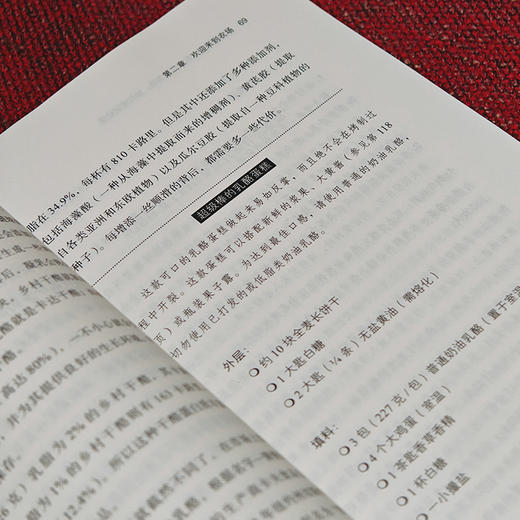 第二章 欢迎来到农场 69
脂在 34.9%，每杯有 810 卡路里。但是其中还添加了多种添加剂，
包括海藻酸（一种从海藻中提取而来的增稠剂）、黄芪胶（提取
自各类亚洲和东欧植物）以及瓜尔豆胶（提取自一种豆科植物的
种子）。每增添一丝顺滑的背后，都需要多一些代价。
超级棒的乳酪蛋糕
这款可口的乳酪蛋糕做起来易如反掌，而且绝不会在烤制过
程中开裂。这款蛋糕可以搭配新鲜的浆果、大黄酱（参见第 118
页）或瓶装果子露。为达到最佳口感，请使用普通的奶油乳酪，
切勿使用已打发的或低脂类奶油乳酪。
外层：
约 10 块全麦长饼干
1 大匙白糖
2 大匙（¼ 条）无盐黄油（需熔化）
填料：
3 包（227 克/包）普通奶油乳酪（置于室
4 个大鸡蛋（室温）
1 茶匙香草香精
1 杯白糖
一小撮盐
乡村干酪
就是卡达干酪
一不小心就
高达 80%），
并为其提供良好的生长环
乳脂为 2% 的乡村干酪，其
为 1% 的乡村干酪则有（6）
12.4%)。所以这种干酪蛋
就截然不同了。在